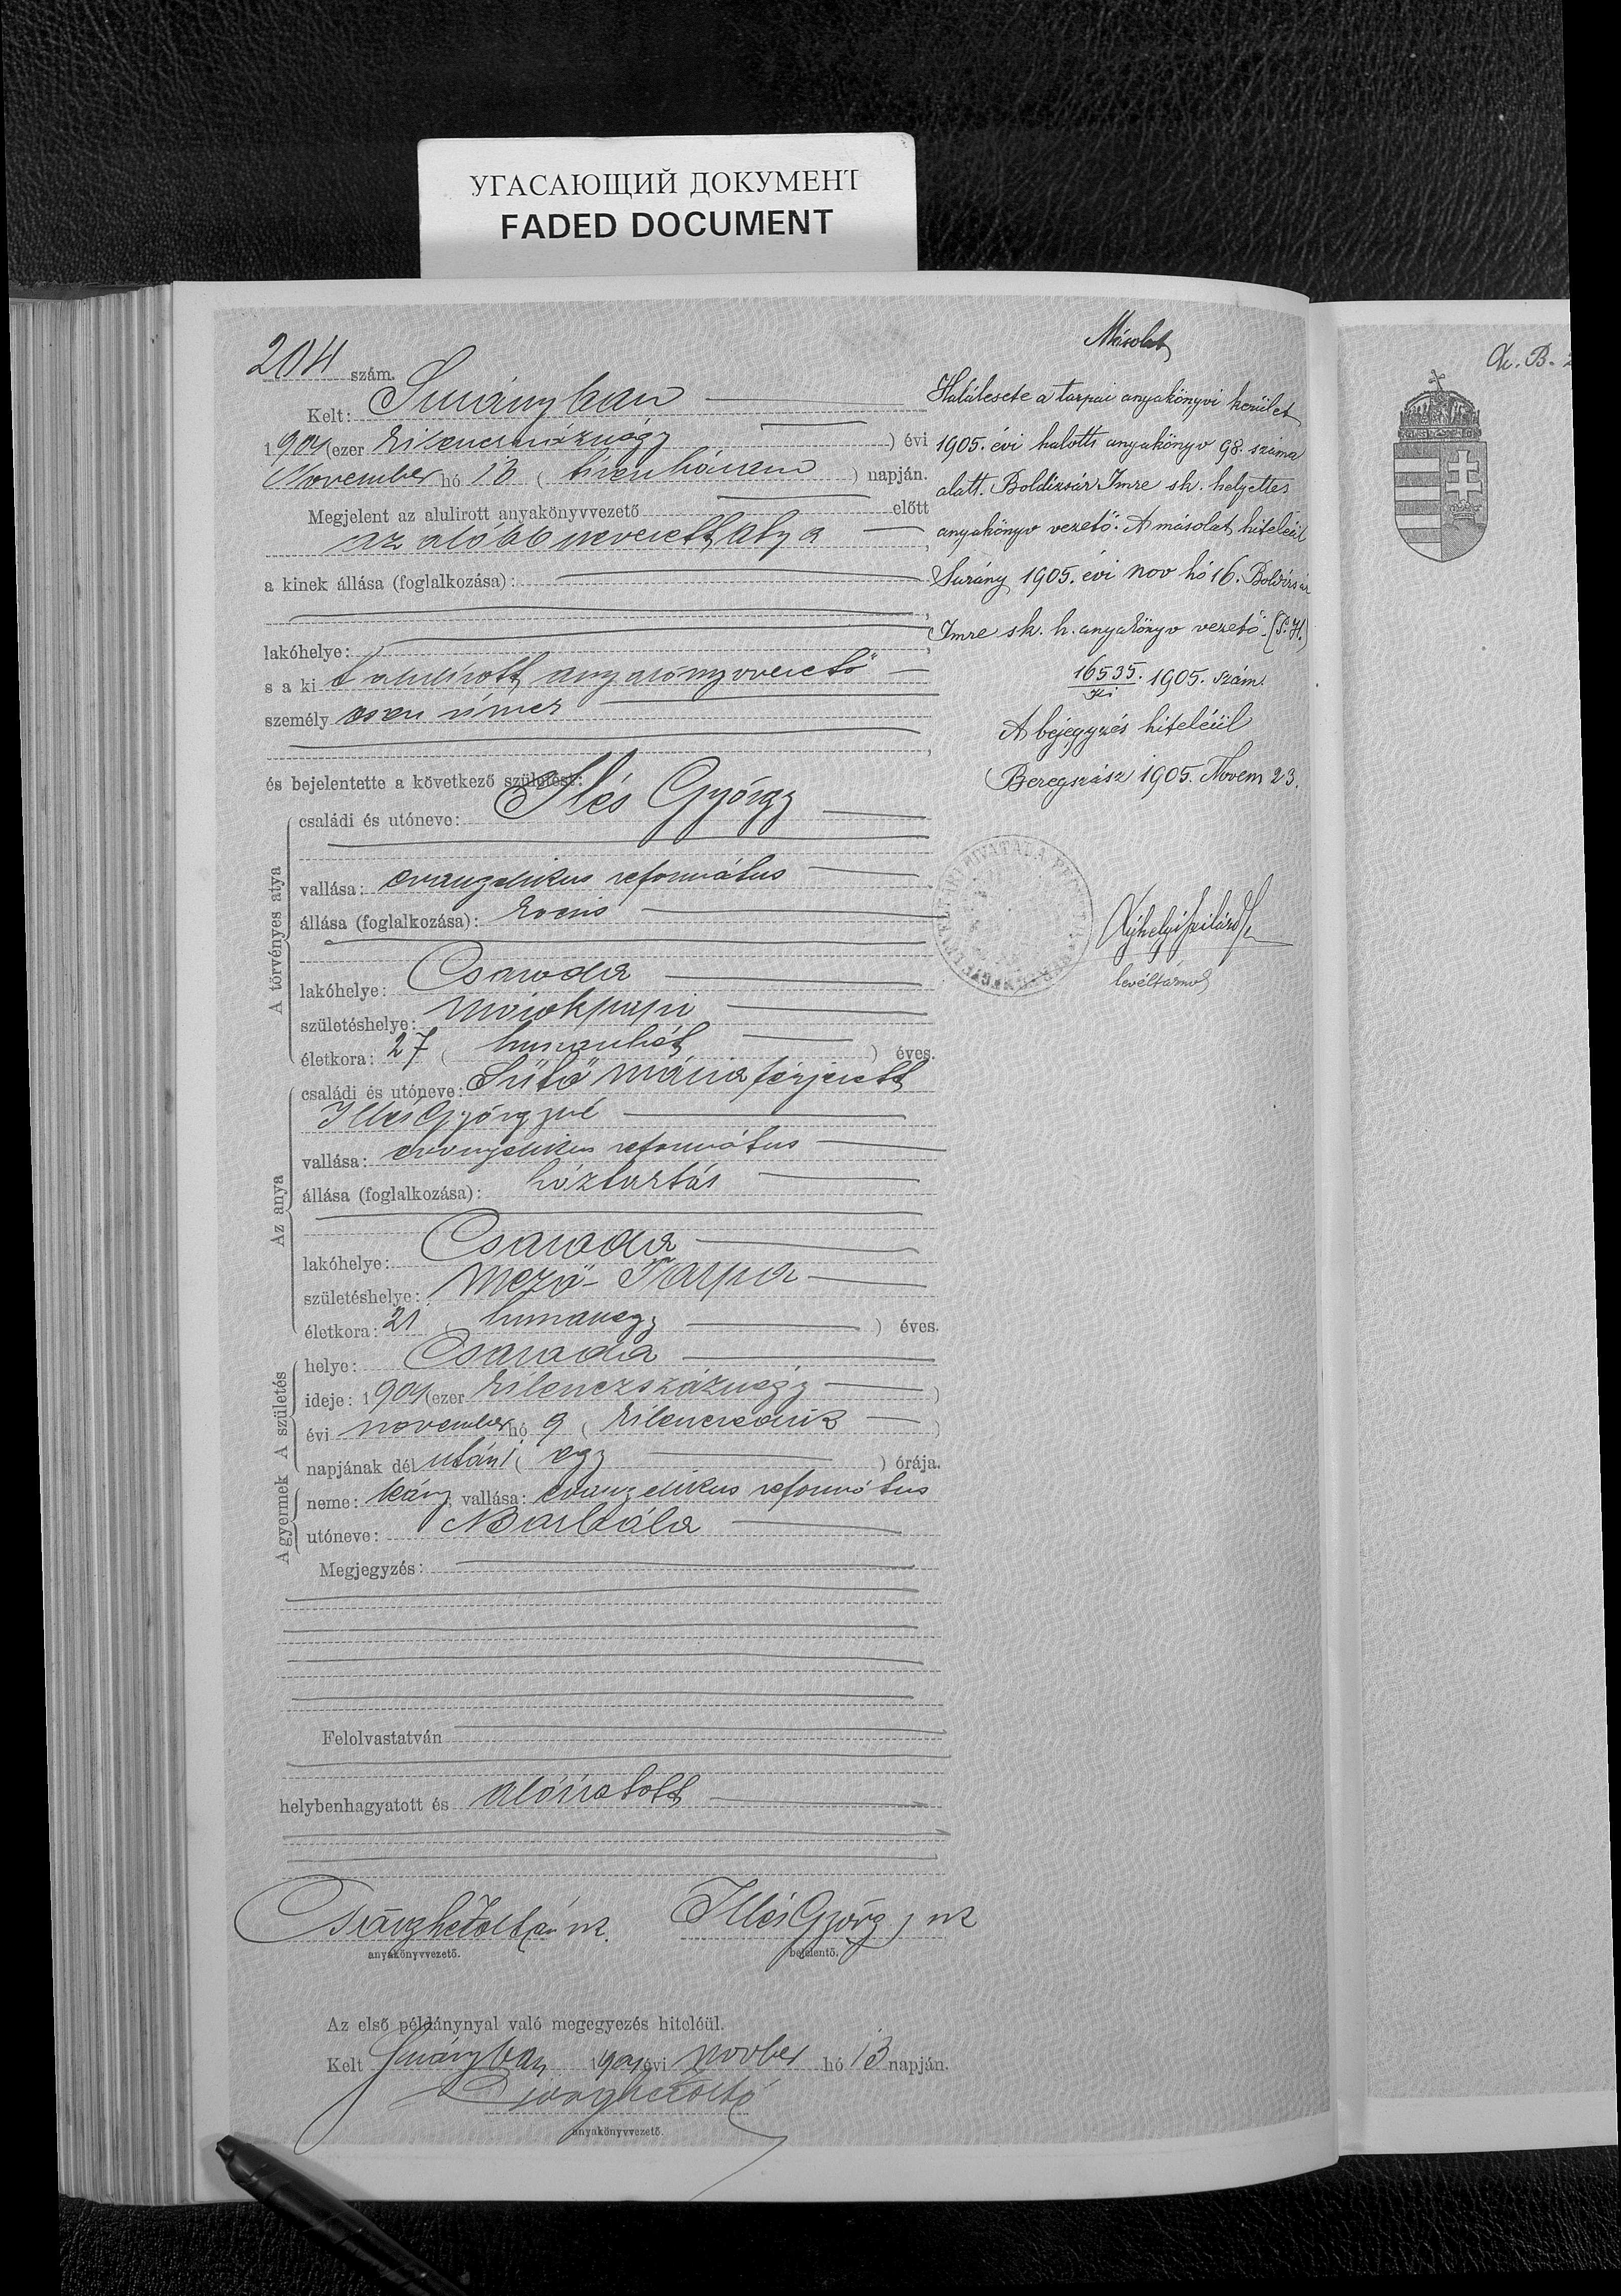 УГАСАЮЩИЙ ДОКУМЕНТ
FADED DOCUMENT
204 szám.
Kelt: Surányban
1904 (ezer kilencszáznégy ) évi
November hó 13 ( tizenhárom ) napján.
Megjelent az alulirott anyakönyvvezető előtt
az alább nevezett atya
a kinek állása (foglalkozása):
lakóhelye:
s a ki t alulírott anyakönyvvezető
személyesen ismer
és bejelentette a következő születést:
A törvényes atya
családi és utóneve: Illés György
vallása: evangelikus református
állása (foglalkozása): kocsis
lakóhelye: Csaroda
születéshelye: Márokpapi
életkora: 27 ( huszonhét ) éves.
Az anya
családi és utóneve: Sütő Mária férjezett
Illés Györgyné
vallása: evangelikus református
állása (foglalkozása): háztartás
lakóhelye: Csaroda
születéshelye: Mező-Tarpa
életkora: 21 ( huszonegy ) éves.
A születés
helye: Csaroda
ideje: 1904 (ezer kilenczszáznégy )
évi november hó 9 ( kilenczedik )
napjának dél utáni 1 ( egy ) órája.
A gyermek
neme: leány, vallása: evangelikus református
utóneve: Borbála
Megjegyzés:
Felolvastatván
helybenhagyatott és aláíratott
Illés György
anyakönyvvezető.
bejelentő.
Az első példánynyal való megegyezés hiteléül.
Kelt Surányban 1904 évi novber hó 13 napján.
anyakönyvvezető.
Másolat
Halálesete a tarpai anyakönyvi kerület
1905. évi halotti anyakönyv 98. száma
alatt. Boldizsár Imre sk. helyettes
anyakönyv vezető. A másolat hiteléül
Surány 1905. évi Nov hó 16. Boldizsár
Imre sk. h. anyakönyv vezető. (P. H.)
16535. 1905. szám.
A bejegyzés hiteléül
Beregszász 1905. Novem 23.
levéltárnok